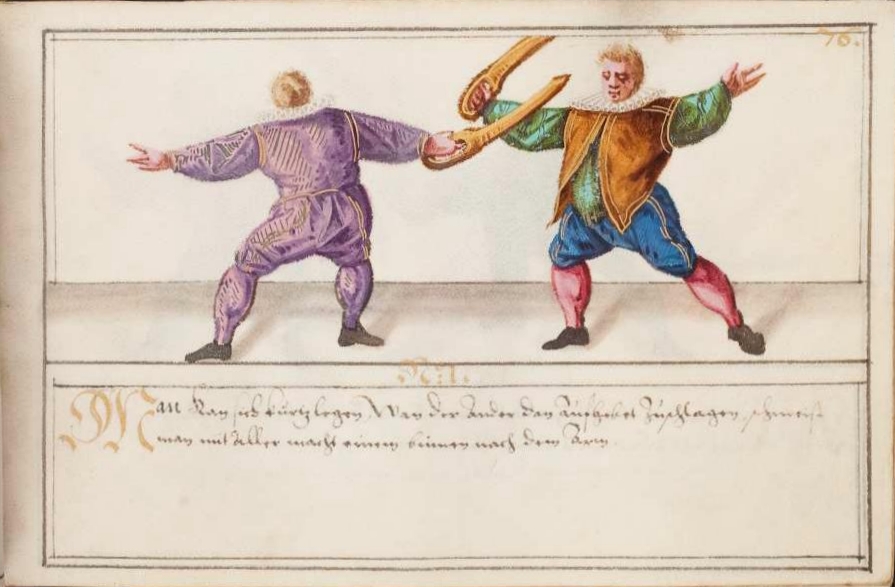 76.
N: 1.
Man Kan sich kurtz legen Wan der Ander dan Aufhebet Zuschlagen, schmeist
man mit Aller macht einem binnen nach dem Arm